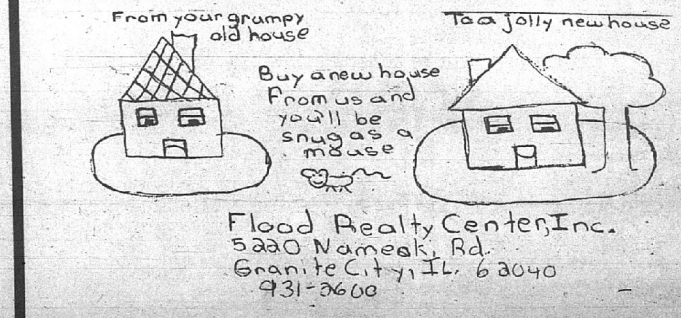 From your grumpy
old house
To a jolly new house
Buy a new house
From us and
you'll be
snug as a
mouse
Flood Realty Center, Inc.
5220 Nameok, Rd.
Granite City, IL. 62040
931-2600